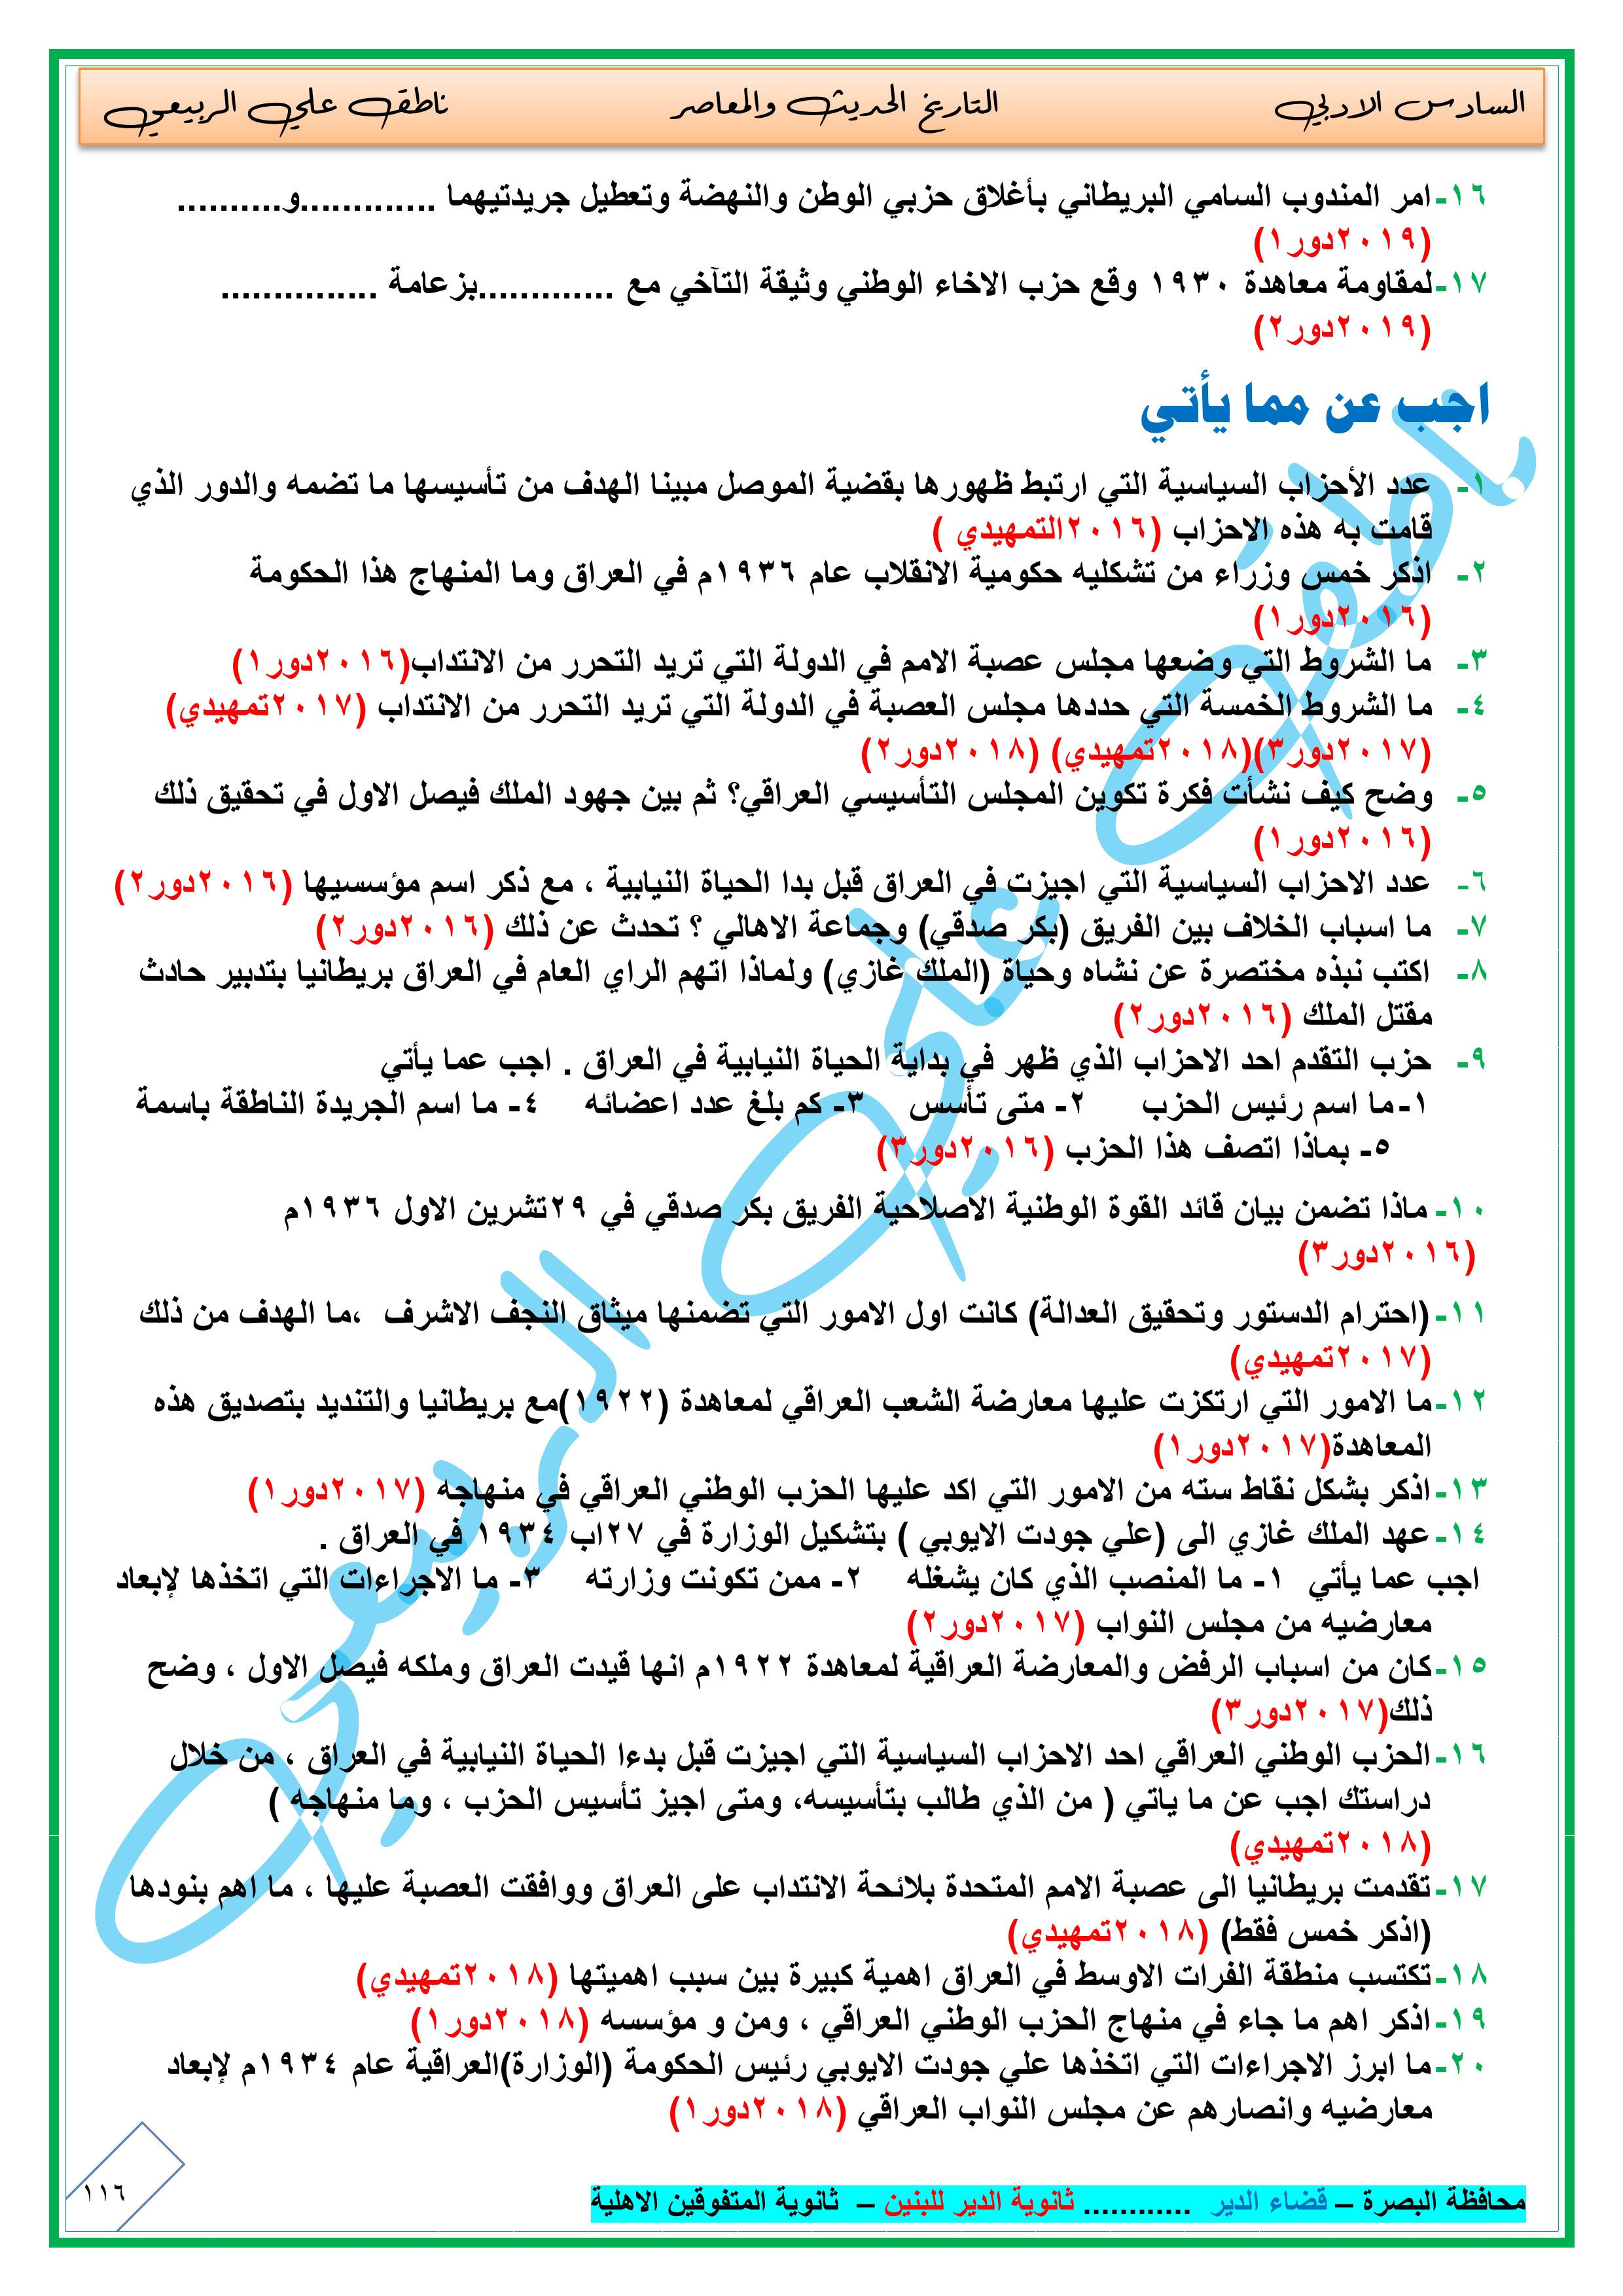 السادس الادبي التاريخ الحديث والمعاصر ناطق علي الربيعي
١٦-امر المندوب السامي البريطاني بأغلاق حزبي الوطن والنهضة وتعطيل جريدتيهما .............و..........
(٢٠١٩دور١)
١٧-لمقاومة معاهدة ١٩٣٠ وقع حزب الاخاء الوطني وثيقة التآخي مع .............بزعامة ...............
(٢٠١٩دور٢)
اجب عن مما يأتي
١- عدد الأحزاب السياسية التي ارتبط ظهورها بقضية الموصل مبينا الهدف من تأسيسها ما تضمه والدور الذي
قامت به هذه الاحزاب (٢٠١٦التمهيدي )
٢- اذكر خمس وزراء من تشكليه حكومية الانقلاب عام ١٩٣٦م في العراق وما المنهاج هذا الحكومة
(٢٠١٦دور١)
٣- ما الشروط التي وضعها مجلس عصبة الامم في الدولة التي تريد التحرر من الانتداب(٢٠١٦دور١)
٤- ما الشروط الخمسة التي حددها مجلس العصبة في الدولة التي تريد التحرر من الانتداب (٢٠١٧تمهيدي)
(٢٠١٧دور٣)(٢٠١٨تمهيدي) (٢٠١٨دور٢)
٥- وضح كيف نشأت فكرة تكوين المجلس التأسيسي العراقي؟ ثم بين جهود الملك فيصل الاول في تحقيق ذلك
(٢٠١٦دور١)
٦- عدد الاحزاب السياسية التي اجيزت في العراق قبل بدا الحياة النيابية ، مع ذكر اسم مؤسسيها (٢٠١٦دور٢)
٧- ما اسباب الخلاف بين الفريق (بكر صدقي) وجماعة الاهالي ؟ تحدث عن ذلك (٢٠١٦دور٢)
٨- اكتب نبذه مختصرة عن نشاه وحياة (الملك غازي) ولماذا اتهم الراي العام في العراق بريطانيا بتدبير حادث
مقتل الملك (٢٠١٦دور٢)
٩- حزب التقدم احد الاحزاب الذي ظهر في بداية الحياة النيابية في العراق . اجب عما يأتي
١-ما اسم رئيس الحزب ٢- متى تأسس ٣- كم بلغ عدد اعضائه ٤- ما اسم الجريدة الناطقة باسمة
٥- بماذا اتصف هذا الحزب (٢٠١٦دور٣)
١٠-ماذا تضمن بيان قائد القوة الوطنية الاصلاحية الفريق بكر صدقي في ٢٩تشرين الاول ١٩٣٦م
(٢٠١٦دور٣)
١١-(احترام الدستور وتحقيق العدالة) كانت اول الامور التي تضمنها ميثاق النجف الاشرف ،ما الهدف من ذلك
(٢٠١٧تمهيدي)
١٢-ما الامور التي ارتكزت عليها معارضة الشعب العراقي لمعاهدة (١٩٢٢)مع بريطانيا والتنديد بتصديق هذه
المعاهدة(٢٠١٧دور١)
١٣-اذكر بشكل نقاط سته من الامور التي اكد عليها الحزب الوطني العراقي في منهاجه (٢٠١٧دور١)
١٤-عهد الملك غازي الى (علي جودت الايوبي ) بتشكيل الوزارة في ٢٧اب ١٩٣٤ في العراق .
اجب عما يأتي ١- ما المنصب الذي كان يشغله ٢- ممن تكونت وزارته ٣- ما الاجراءات التي اتخذها لإبعاد
معارضيه من مجلس النواب (٢٠١٧دور٢)
١٥-كان من اسباب الرفض والمعارضة العراقية لمعاهدة ١٩٢٢م انها قيدت العراق وملكه فيصل الاول ، وضح
ذلك(٢٠١٧دور٣)
١٦-الحزب الوطني العراقي احد الاحزاب السياسية التي اجيزت قبل بدءا الحياة النيابية في العراق ، من خلال
دراستك اجب عن ما ياتي ( من الذي طالب بتأسيسه، ومتى اجيز تأسيس الحزب ، وما منهاجه )
(٢٠١٨تمهيدي)
١٧-تقدمت بريطانيا الى عصبة الامم المتحدة بلائحة الانتداب على العراق ووافقت العصبة عليها ، ما اهم بنودها
(اذكر خمس فقط) (٢٠١٨تمهيدي)
١٨-تكتسب منطقة الفرات الاوسط في العراق اهمية كبيرة بين سبب اهميتها (٢٠١٨تمهيدي)
١٩-اذكر اهم ما جاء في منهاج الحزب الوطني العراقي ، ومن و مؤسسه (٢٠١٨دور١)
٢٠-ما ابرز الاجراءات التي اتخذها علي جودت الايوبي رئيس الحكومة (الوزارة)العراقية عام ١٩٣٤م لإبعاد
معارضيه وانصارهم عن مجلس النواب العراقي (٢٠١٨دور١)
ناطق علي الربيعي
محافظة البصرة – قضاء الدير ............ ثانوية الدير للبنين – ثانوية المتفوقين الاهلية
١١٦